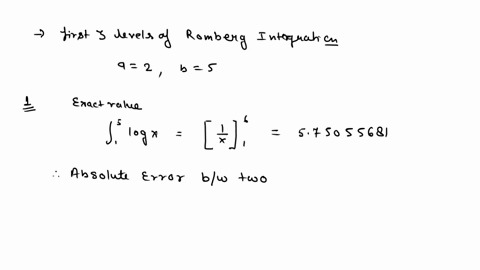 → first 3 levels of Romberg Integration
a = 2, b = 5
1 Exact value
∫₁⁵ log x = [1/x]₁⁶ = 5.75055681
∴ Absolute Error b/w two